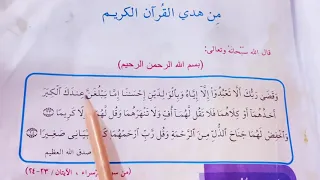 من هدي القرآن الكريم
قال الله سبحانه وتعالى:
(بسم الله الرحمن الرحيم)
وَقَضَىٰ رَبُّكَ أَلَّا تَعْبُدُوٓا۟ إِلَّآ إِيَّاهُ وَبِٱلْوَٰلِدَيْنِ إِحْسَٰنًا إِمَّا يَبْلُغَنَّ عِندَكَ ٱلْكِبَرَ
أَحَدُهُمَآ أَوْ كِلَاهُمَا فَلَا تَقُل لَّهُمَآ أُفٍّ وَلَا تَنْهَرْهُمَا وَقُل لَّهُمَا قَوْلًا كَرِيمًا ﴿٢٣﴾
وَٱخْفِضْ لَهُمَا جَنَاحَ ٱلذُّلِّ مِنَ ٱلرَّحْمَةِ وَقُل رَّبِّ ٱرْحَمْهُمَا رَبَّيَانِى صَغِيرًا ﴿٢٤﴾
صدق الله العظيم
من سو سراء ، الآيتان / ٢٣-٢٤)